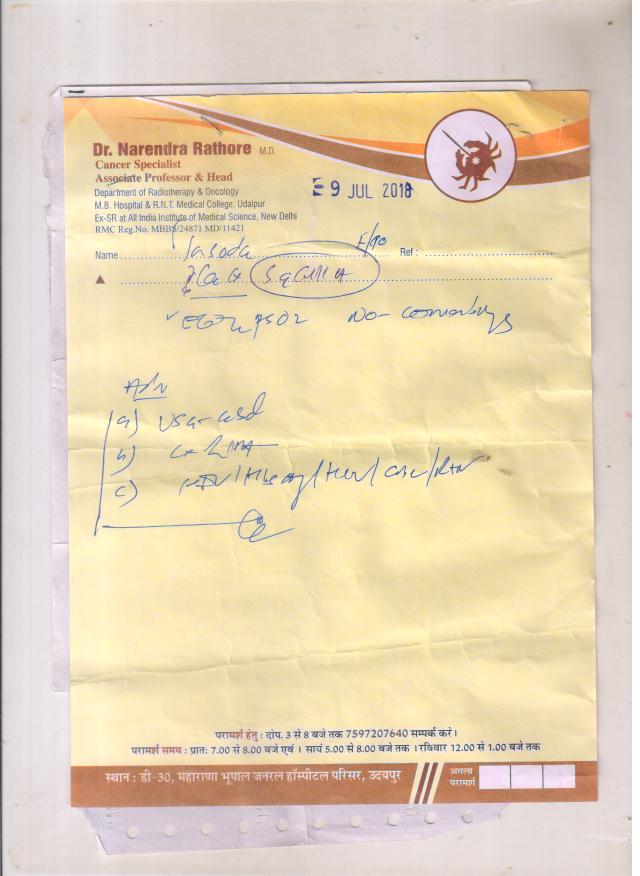 Dr. Narendra Rathore M.D.
Cancer Specialist
Associate Professor & Head
Department of Radiotherapy & Oncology
M.B. Hospital & R.N.T. Medical College, Udaipur
Ex-SR at All India Institute of Medical Science, New Delhi
RMC Reg.No. MBBS/24871 MD/11421
9 JUL 2018
Name Jasoda F/90 Ref :
No-
Adv
a) USG-
b)
c)
परामर्श हेतु : दोप. 3 से 8 बजे तक 7597207640 सम्पर्क करे।
परामर्श समय : प्रातः 7.00 से 8.00 बजे एवं । सायं 5.00 से 8.00 बजे तक । रविवार 12.00 से 1.00 बजे तक
स्थान : डी-30, महाराणा भूपाल जनरल हॉस्पीटल परिसर, उदयपुर
अगला
परामर्श